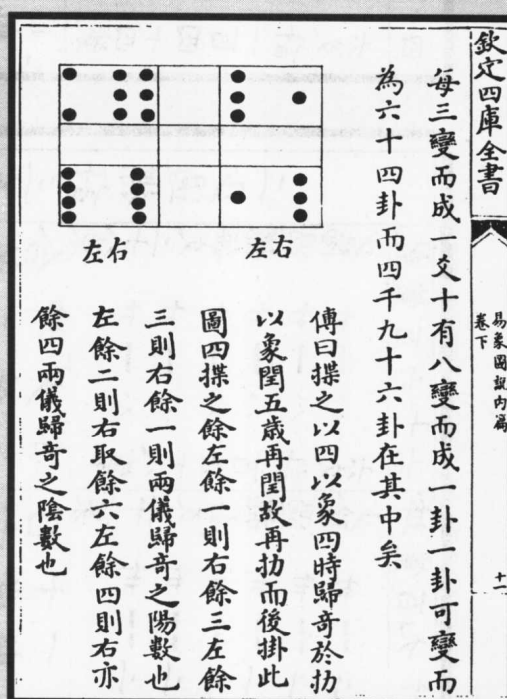 欽定四庫全書
易象圖說內篇
卷下
十一
每三變而成一爻十有八變而成一卦一卦可變而
為六十四卦而四千九十六卦在其中矣
左右
左右
傳曰揲之以四以象四時歸奇於扐
以象閏五歲再閏故再扐而後掛此
圖四揲之餘左餘一則右餘三左餘
三則右餘一則兩儀歸奇之陽數也
左餘二則右取餘六左餘四則右亦
餘四兩儀歸奇之陰數也